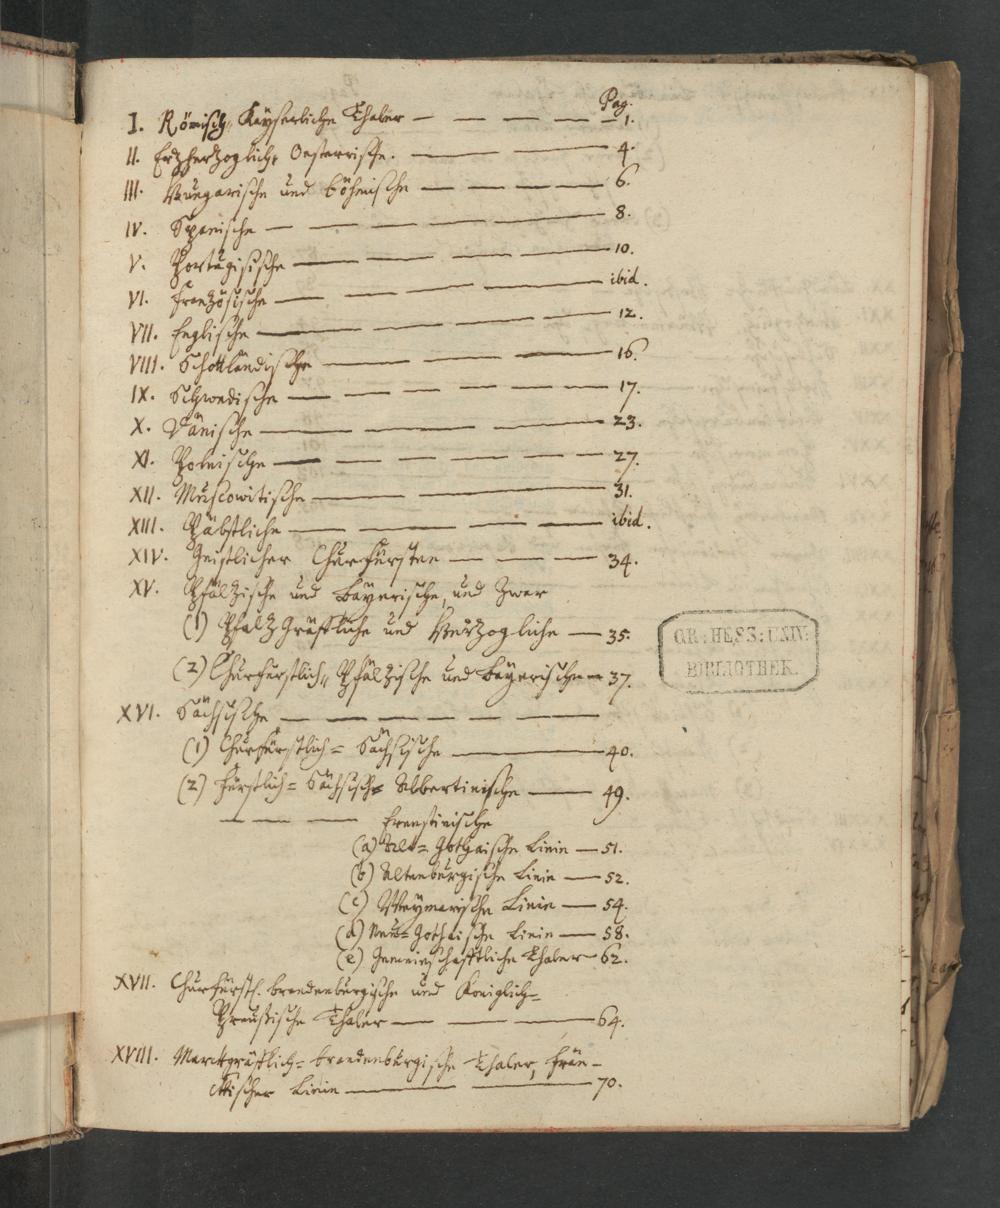 Pag.
I. Römisch„ Kayserliche Thaler — — — — 1.
II. Ertzhertzogliche Oesterrische. — — — 4.
III. Hungarische und böhmische — — — — 6.
IV. Spanische — — — — — — 8.
V. Portugisische — — — — 10.
VI. Französische — — — — — ibid.
VII. Englische — — — — — 12.
VIII. Schottländische — — — — 16.
IX. Schwedische — — — — — 17.
X. Dänische — — — — 23.
XI. Polnische — — — — — — 27.
XII. Muscowitische — — — — 31.
XIII. Päbstliche — — — — ibid.
XIV. Geistlicher Churfürsten — — — 34.
XV. Pfältzische und bayerische, und zwar
(1) Pfaltz Gräffliche und Hertzogliche — 35.
(2) Churfürstlich„ Pfältzische und bayerische — 37.
XVI. Sächsische — — — — — —
(1) Churfürstlich= Sächsische — 40.
(2) Fürstlich= Sächsische Albertinische — 49.
— — — Ernestinische
(a) Alt= Gothaische Linie — 51.
(b) Altenburgische Linie — 52.
(c) Weymarische Linie — 54.
(d) Neu= Gothaische Linie — 58.
(e) Gemeinschafftliche Thaler — 62.
XVII. Churfürstl. brandenburgische und Königlich=
Preussische Thaler — — — 64.
XVIII. Marckgräfflich= brandenburgische Thaler, Frän-
ckischer Linie — — 70.
GR: HESS: UNIV:
BIBLIOTHEK.